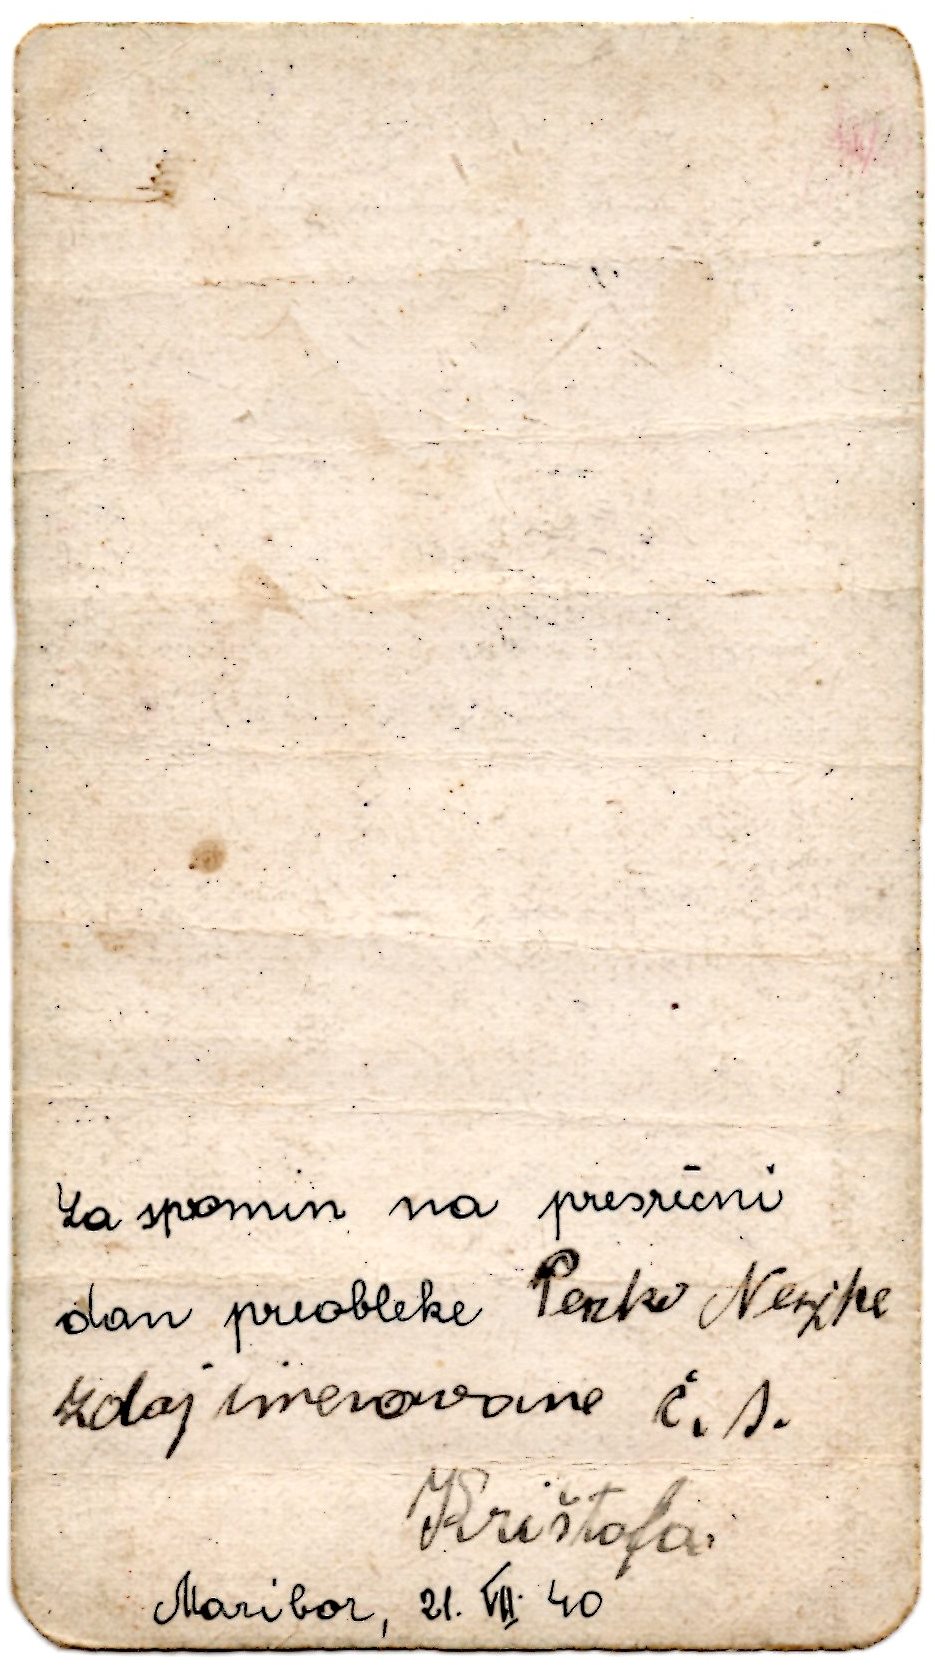 Za spomin na presrečni
dan preobleke Penko Nežike
zdaj imenovane č. s.
Krištofa.
Maribor, 21. VII. 40